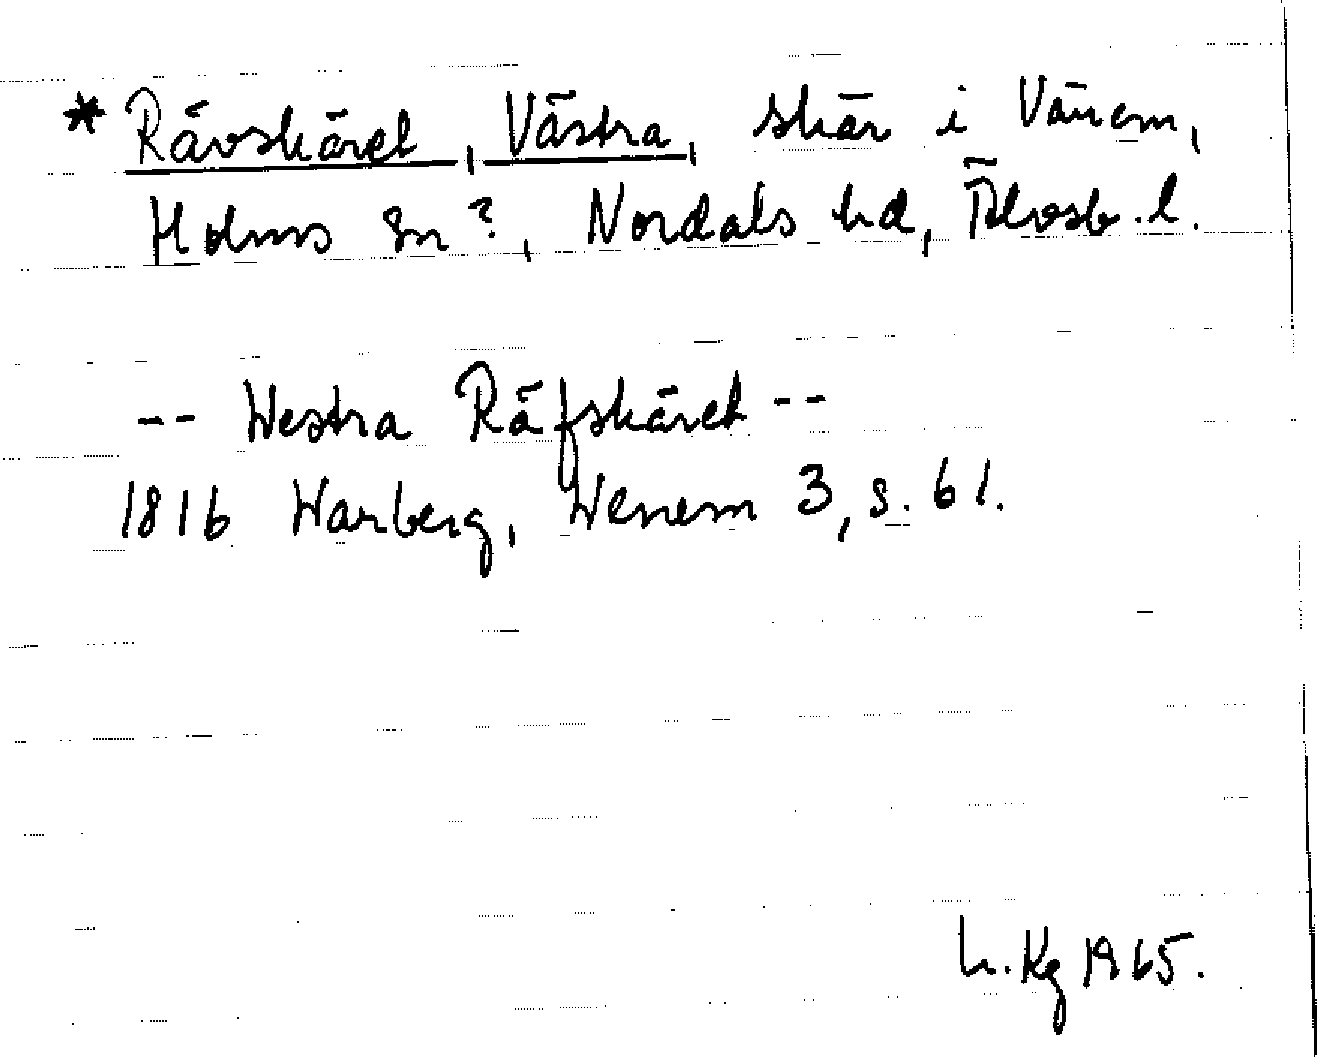 * Rävskäret, Västra, skär i Vänern,
Holms sn?, Nordals hd, Älvsb. l.
-- Westra Räfskäret --
1816 Warberg, Wenern 3, s. 61.
L. Kg 1965.